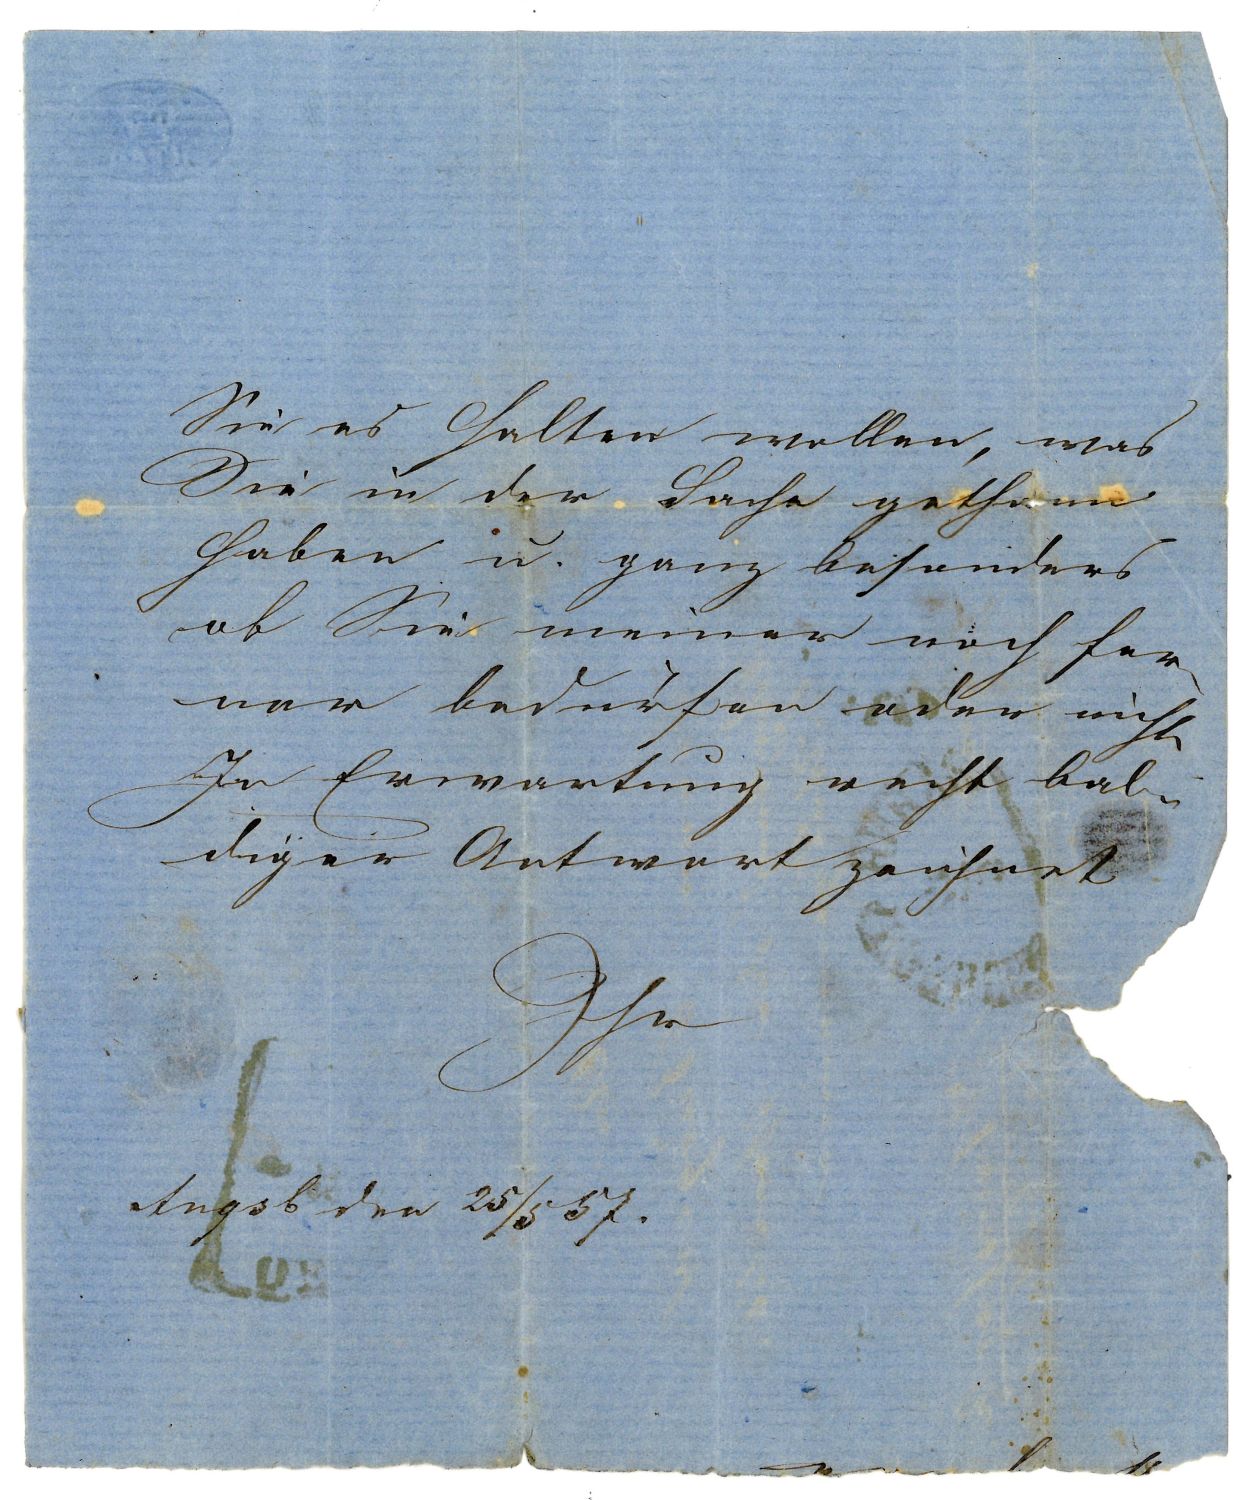 Sie es halten wollen, was
Sie in der Sache gethan
haben u. ganz besonders
ob Sie meiner noch fer-
ner bedürfen oder nicht
In Erwartung recht bal-
diger Antwort zeichnet
Ihr
Augsb den 25/5 57.